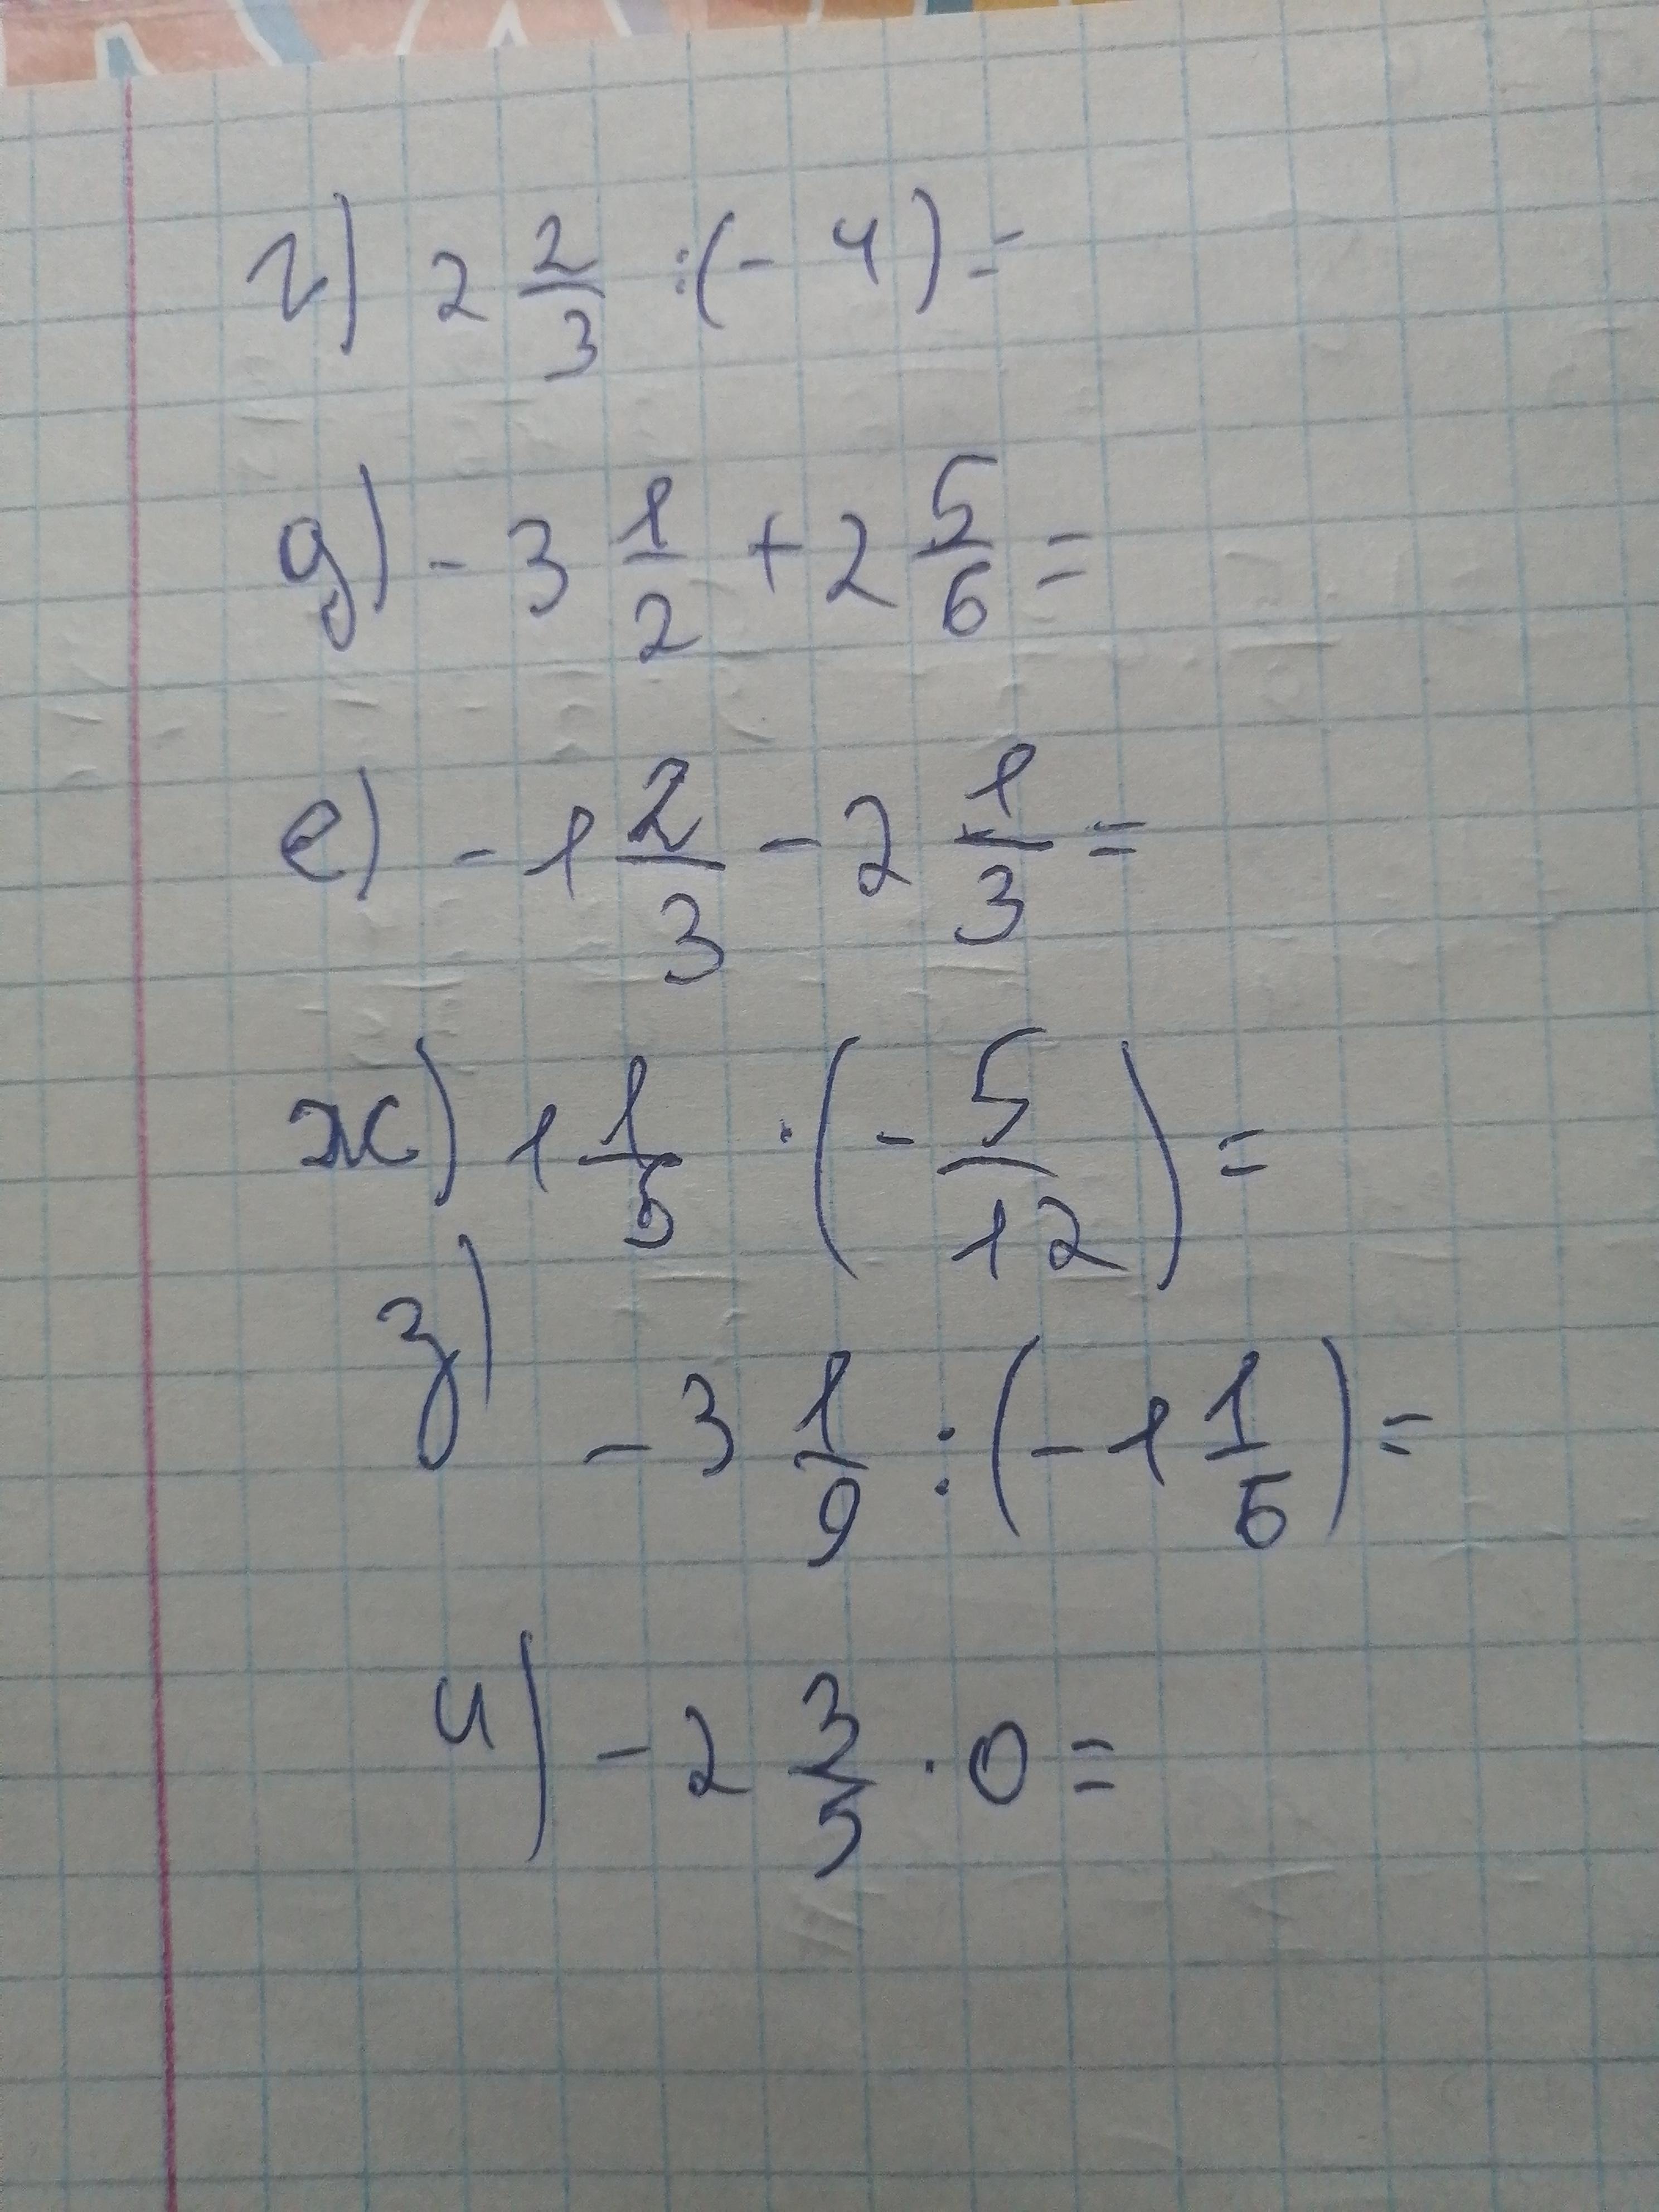 г) 2 2/3 : (- 4) =
д) - 3 1/2 + 2 5/6 =
е) - 1 2/3 - 2 1/3 =
ж) 1 1/5 · (- 5/12) =
з) - 3 1/9 : (- 1 1/6) =
и) - 2 3/5 · 0 =